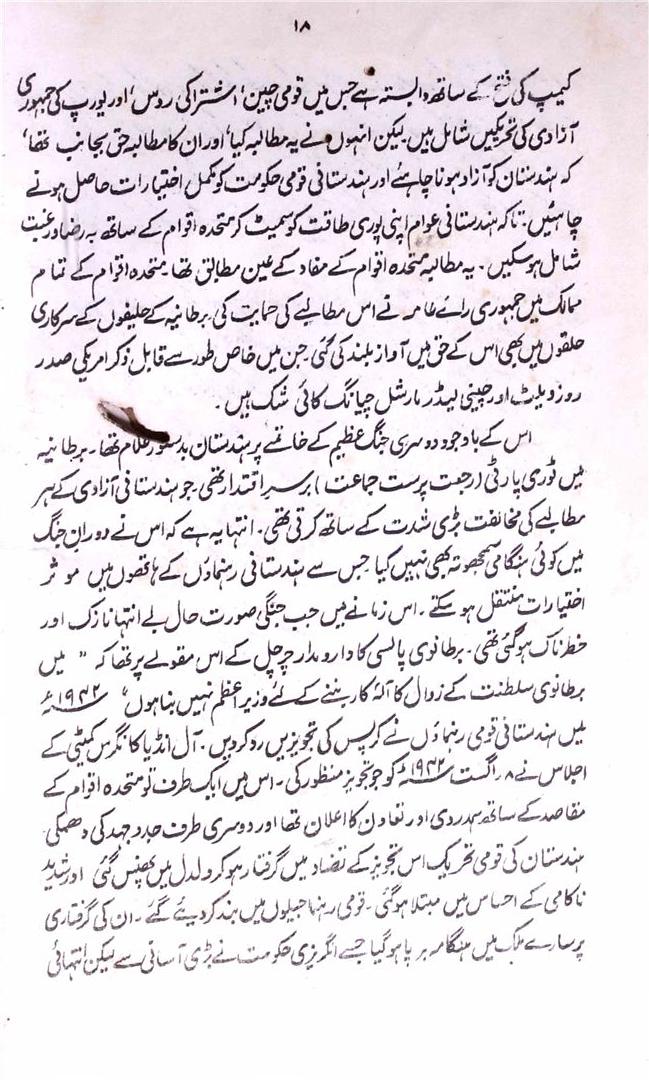 ۱۸
کیمپ کی فتح کے ساتھ وابستہ ہے جس میں قومی چین، اشتراکی روس، اور یورپ کی جمہوری
آزادی کی تحریکیں شامل ہیں۔ لیکن انہوں نے یہ مطالبہ کیا، اور ان کا مطالبہ حق بجانب تھا،
کہ ہندستان کو آزاد ہونا چاہئے اور ہندستانی قومی حکومت کو مکمل اختیارات حاصل ہونے
چاہئیں۔ تاکہ ہندستانی عوام اپنی پوری طاقت کو سمیٹ کر متحدہ اقوام کے ساتھ بہ رضا و رغبت
شامل ہو سکیں۔ یہ مطالبہ متحدہ اقوام کے مفاد کے عین مطابق تھا۔ متحدہ اقوام کے تمام
ممالک میں جمہوری رائے عامہ نے اس مطالبے کی حمایت کی۔ برطانیہ کے حلیفوں کے سرکاری
حلقوں میں بھی اس کے حق میں آواز بلند کی گئی۔ جن میں خاص طور سے قابل ذکر امریکی صدر
روزویلٹ اور چینی لیڈر مارشل چیانگ کائی شک ہیں۔
اس کے باوجود دوسری جنگ عظیم کے خاتمے پر ہندستان بدستور غلام تھا۔ برطانیہ
میں ٹوری پارٹی (رجعت پرست جماعت) برسر اقتدار تھی۔ جو ہندستانی آزادی کے ہر
مطالبے کی مخالفت بڑی شدت کے ساتھ کرتی تھی۔ انتہا یہ ہے کہ اس نے دوران جنگ
میں کوئی ہنگامی سمجھوتہ بھی نہیں کیا جس سے ہندستانی رہنماؤں کے ہاتھوں میں موثر
اختیارات منتقل ہو سکتے۔ اس زمانے میں جب جنگی صورت حال بے انتہا نازک اور
خطرناک ہو گئی تھی۔ برطانوی پالسی کا دارومدار چرچل کے اس مقولے پر تھا کہ "میں
برطانوی سلطنت کے زوال کا آلۂ کار بننے کے لئے وزیر اعظم نہیں بنا ہوں" ۱۹۴۲ء
میں ہندستانی قومی رہنماؤں نے کرپس کی تجویزیں رد کر دیں۔ آل انڈیا کانگرس کمیٹی کے
اجلاس نے ۸ اگست ۱۹۴۲ء کو جو تجویز منظور کی۔ اس میں ایک طرف تو متحدہ اقوام کے
مقاصد کے ساتھ ہمدردی اور تعاون کا اعلان تھا اور دوسری طرف جدوجہد کی دھمکی
ہندستان کی قومی تحریک اس تجویز کے تضاد میں گرفتار ہو کر دلدل میں پھنس گئی اور شدید
ناکامی کے احساس میں مبتلا ہو گئی۔ قومی رہنما جیلوں میں بند کر دیئے گئے۔ ان کی گرفتاری
پر سارے ملک میں ہنگامہ برپا ہو گیا جسے انگریزی حکومت نے بڑی آسانی سے لیکن انتہائی